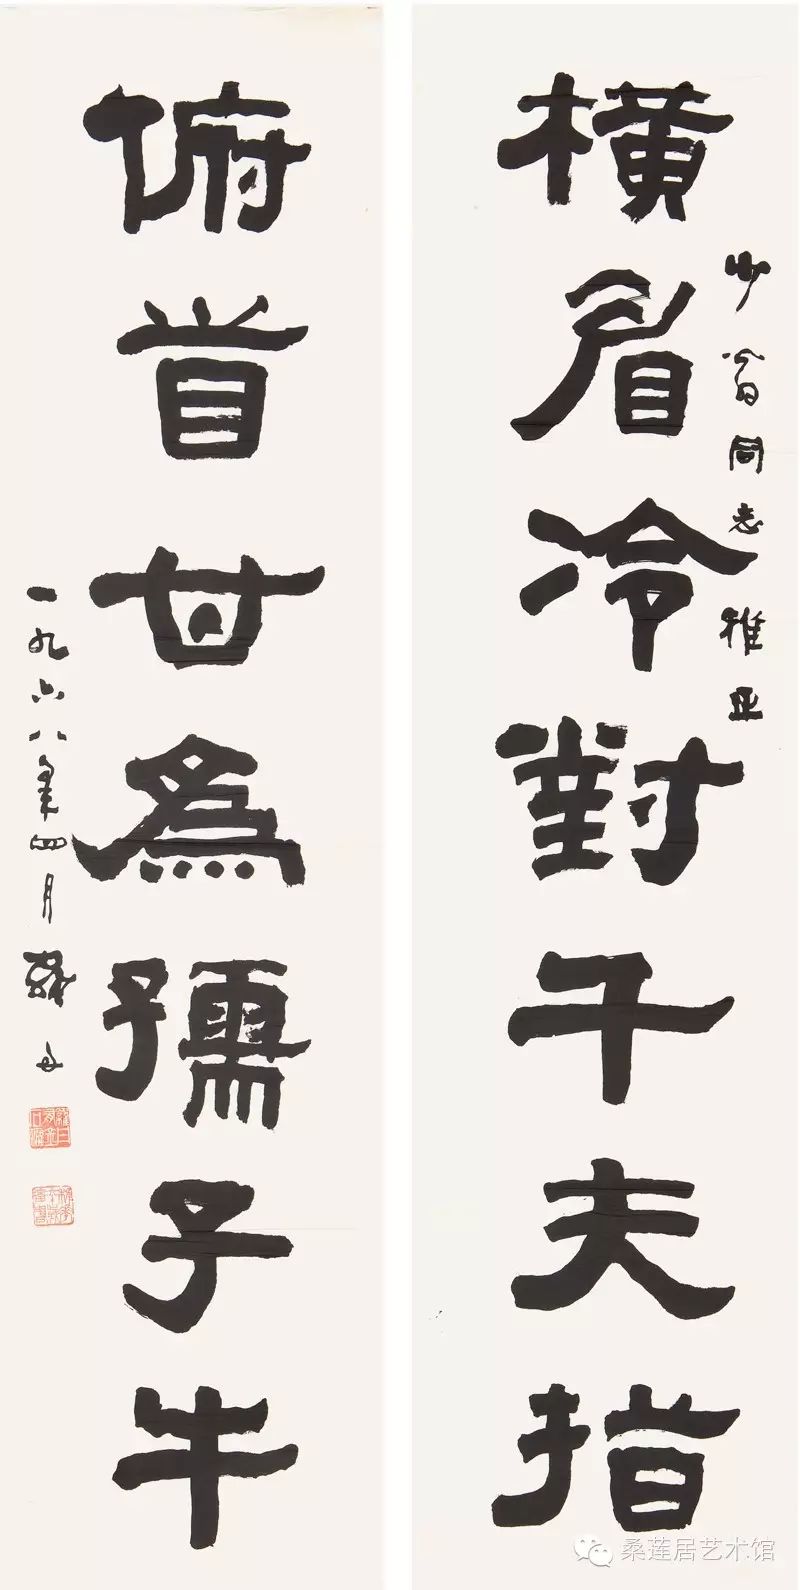 少翁同志雅正
橫眉冷對千夫指
俯首甘為孺子牛
一九六八年四月羅丹
桑莲居艺术馆